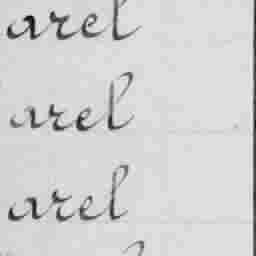 arel
arel
arel